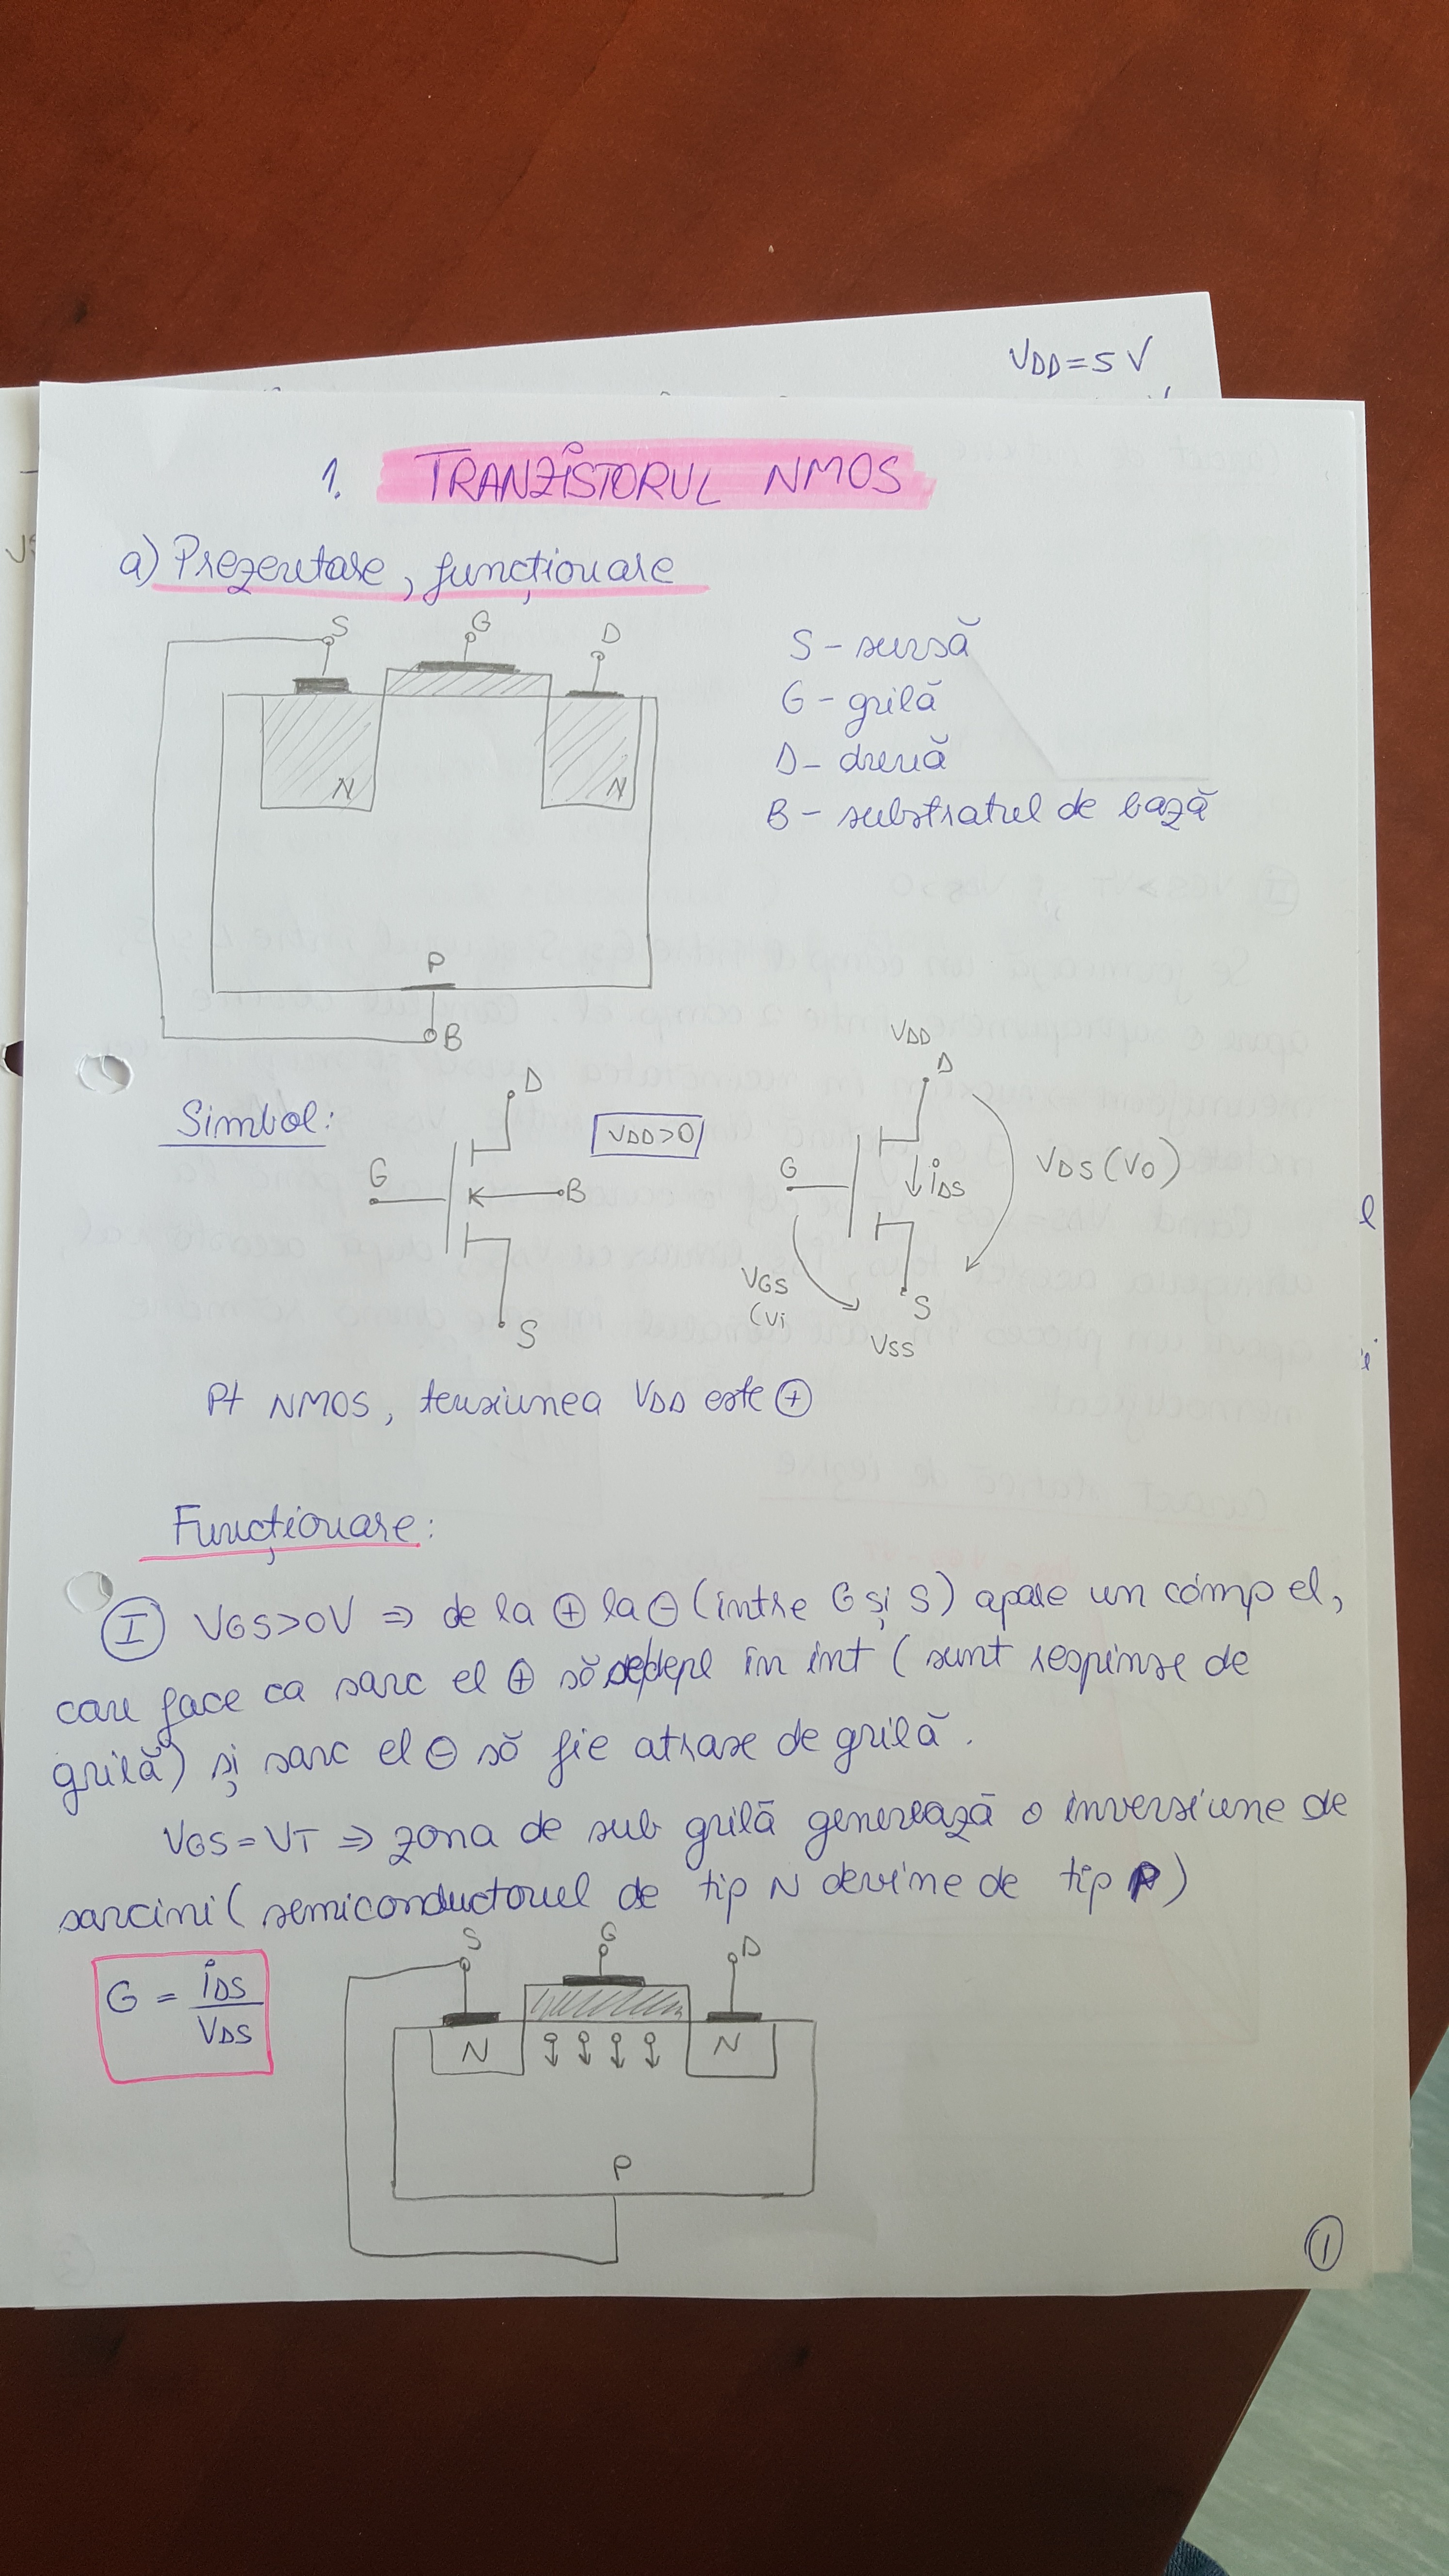 VDD = 5 V
1. TRANZISTORUL NMOS
a) Prezentare, funcționare
S G D
S - sursă
G - grilă
D - drenă
B - substratul de bază
N N
P
B
Simbol:
D
G
B
S
VDD>0
VDD
D
G
iDS
VDS (VO)
VGS
(Vi
S
VSS
Pt NMOS, tensiunea VDD este ⊕
Funcționare:
I VGS>0V ⇒ de la ⊕ la ⊖ (între G și S) apare un câmp el,
care face ca sarc el ⊕ să depl în int (sunt respinse de
grilă) și sarc el ⊖ să fie atrase de grilă.
VGS = VT ⇒ zona de sub grilă generează o inversiune de
sarcini (semiconductorul de tip N devine de tip P)
G = iDS / VDS
S G D
N N
P
1